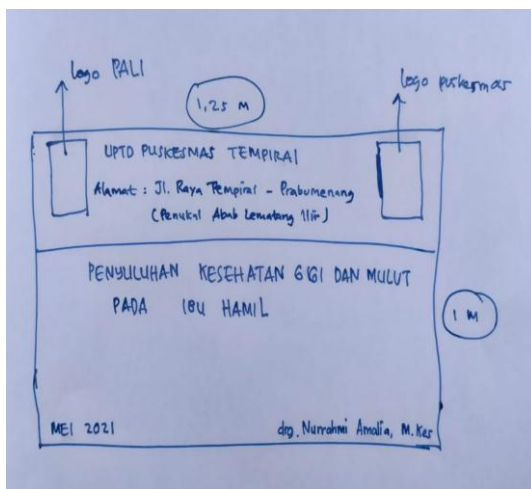 logo PALI
logo puskesmas
1,25 M
UPTD PUSKESMAS TEMPIRAI
Alamat : Jl. Raya Tempirai - Prabumenang
(Penukal Abab Lematang Ilir)
PENYULUHAN KESEHATAN GIGI DAN MULUT
PADA IBU HAMIL
1 M
MEI 2021
drg. Nurrahmi Amalia, M.Kes